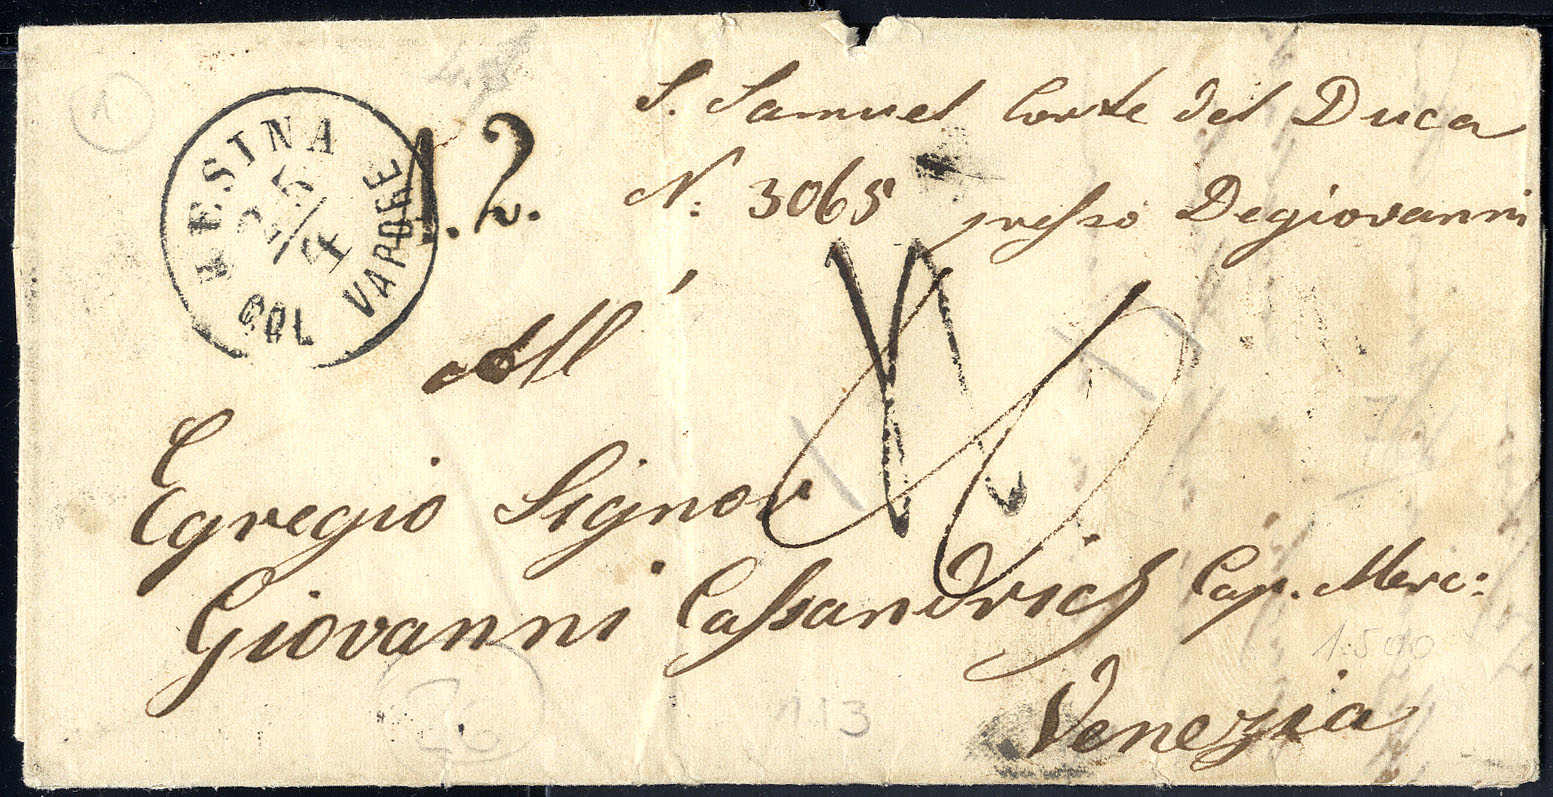 S. Samuel Corte del Duca
N. 3065 presso Degiovanni
MESINA
25/4
COL VAPORE
1.2.
All'
Egregio Signor
Giovanni Cassandrich Cap. Merc:
Venezia
1
1.500
113
26